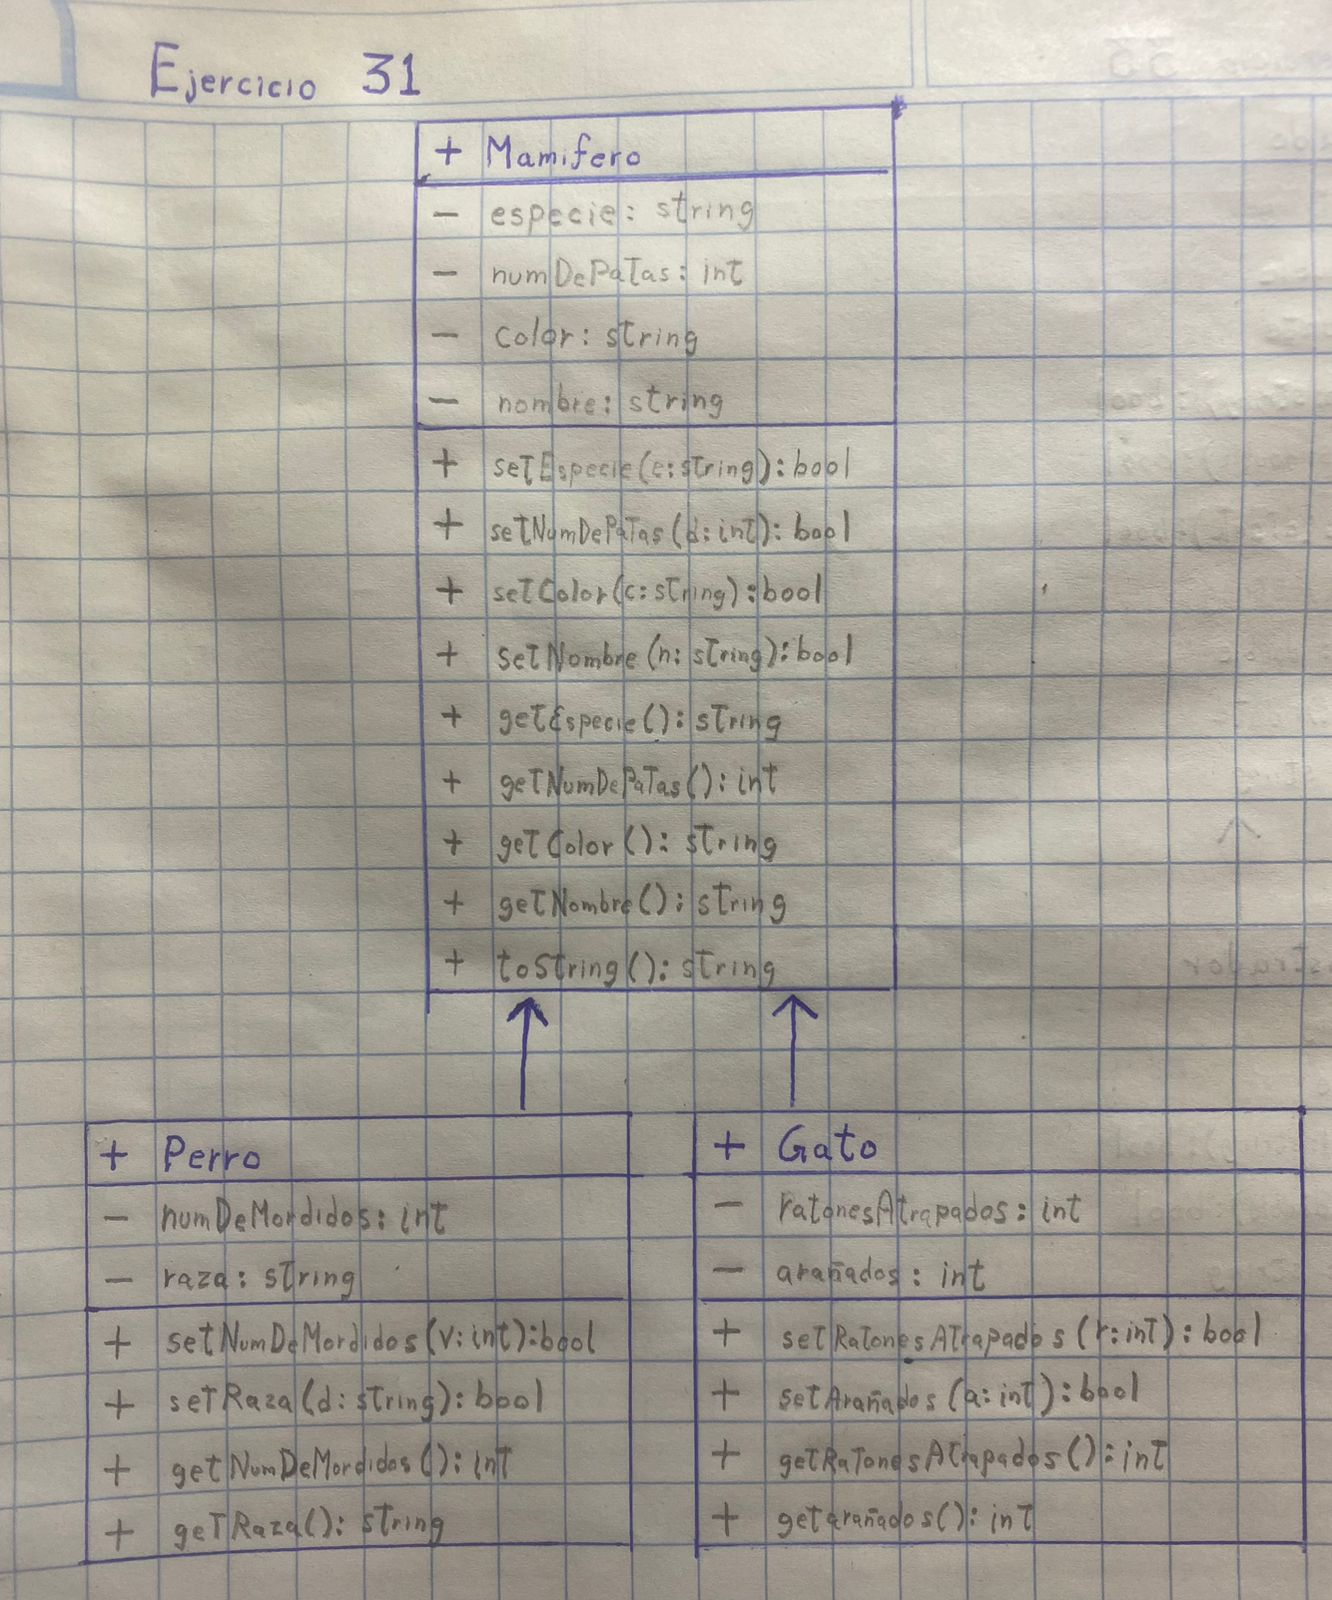 Ejercicio 31
+ Mamifero
- especie: string
- numDePatas: int
- color: string
- nombre: string
+ setEspecie(e:string):bool
+ setNumDePatas(d:int):bool
+ setColor(c:string):bool
+ setNombre(n:string):bool
+ getEspecie():string
+ getNumDePatas():int
+ getColor():string
+ getNombre():string
+ toString():string
+ Perro
- numDeMordidos: int
- raza: string
+ setNumDeMordidos(v:int):bool
+ setRaza(d:string):bool
+ getNumDeMordidos():int
+ getRaza():string
+ Gato
- ratonesAtrapados: int
- arañados: int
+ setRatonesAtrapados(r:int):bool
+ setArañados(a:int):bool
+ getRatonesAtrapados():int
+ getarañados():int